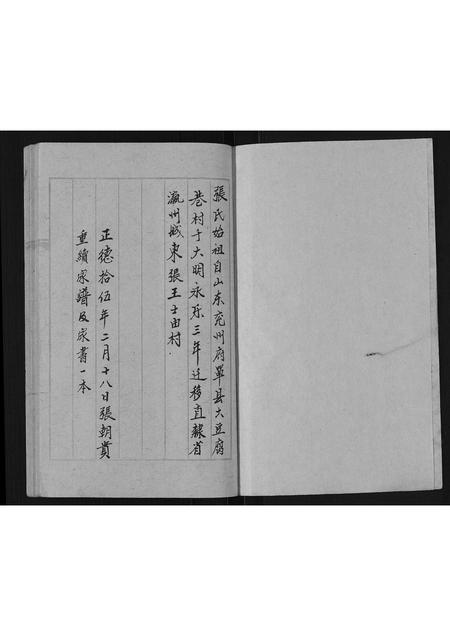 張氏始祖自山东兖州府單县大豆腐
巷村于大明永乐三年迁移直隸省
瀛州城東張王士由村.
正德拾伍年二月十八日張朝賞
重續家譜及家書一本